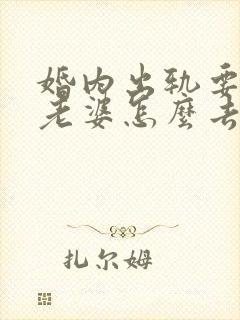 婚内出轨要
老婆怎麼去
扎尔姆